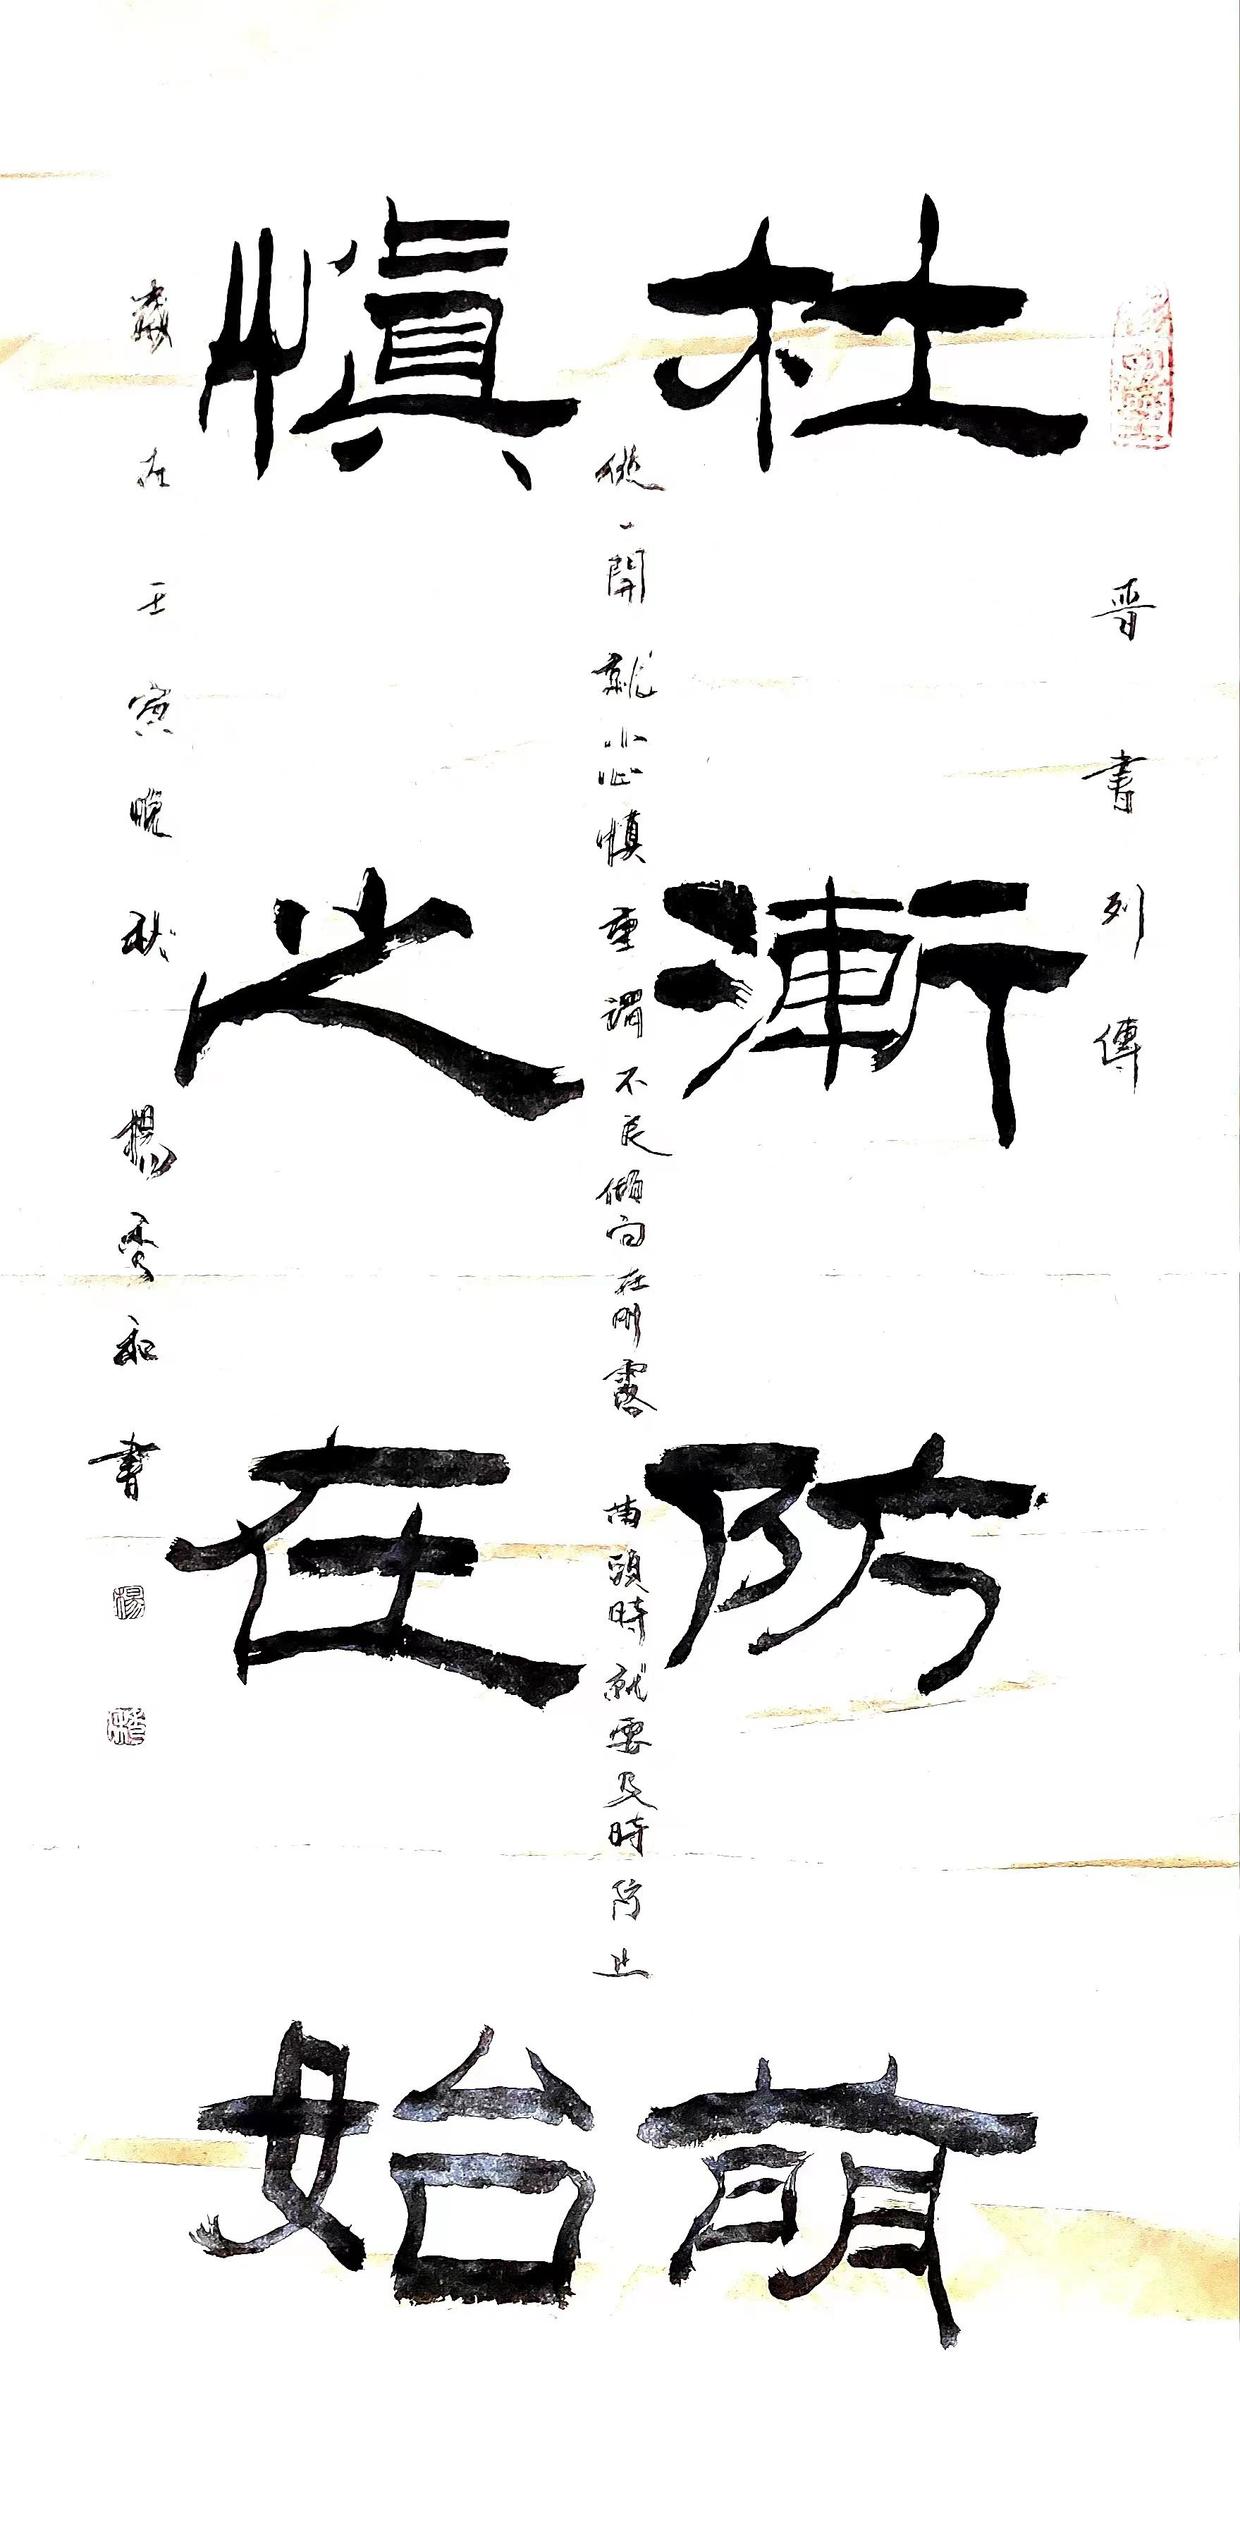 晉書列傳
杜漸防萌
從一開就小心慎重謂不良傾向在剛露苗頭時就要及時防止
慎之在始
歲在壬寅晚秋 楊秀和書
楊